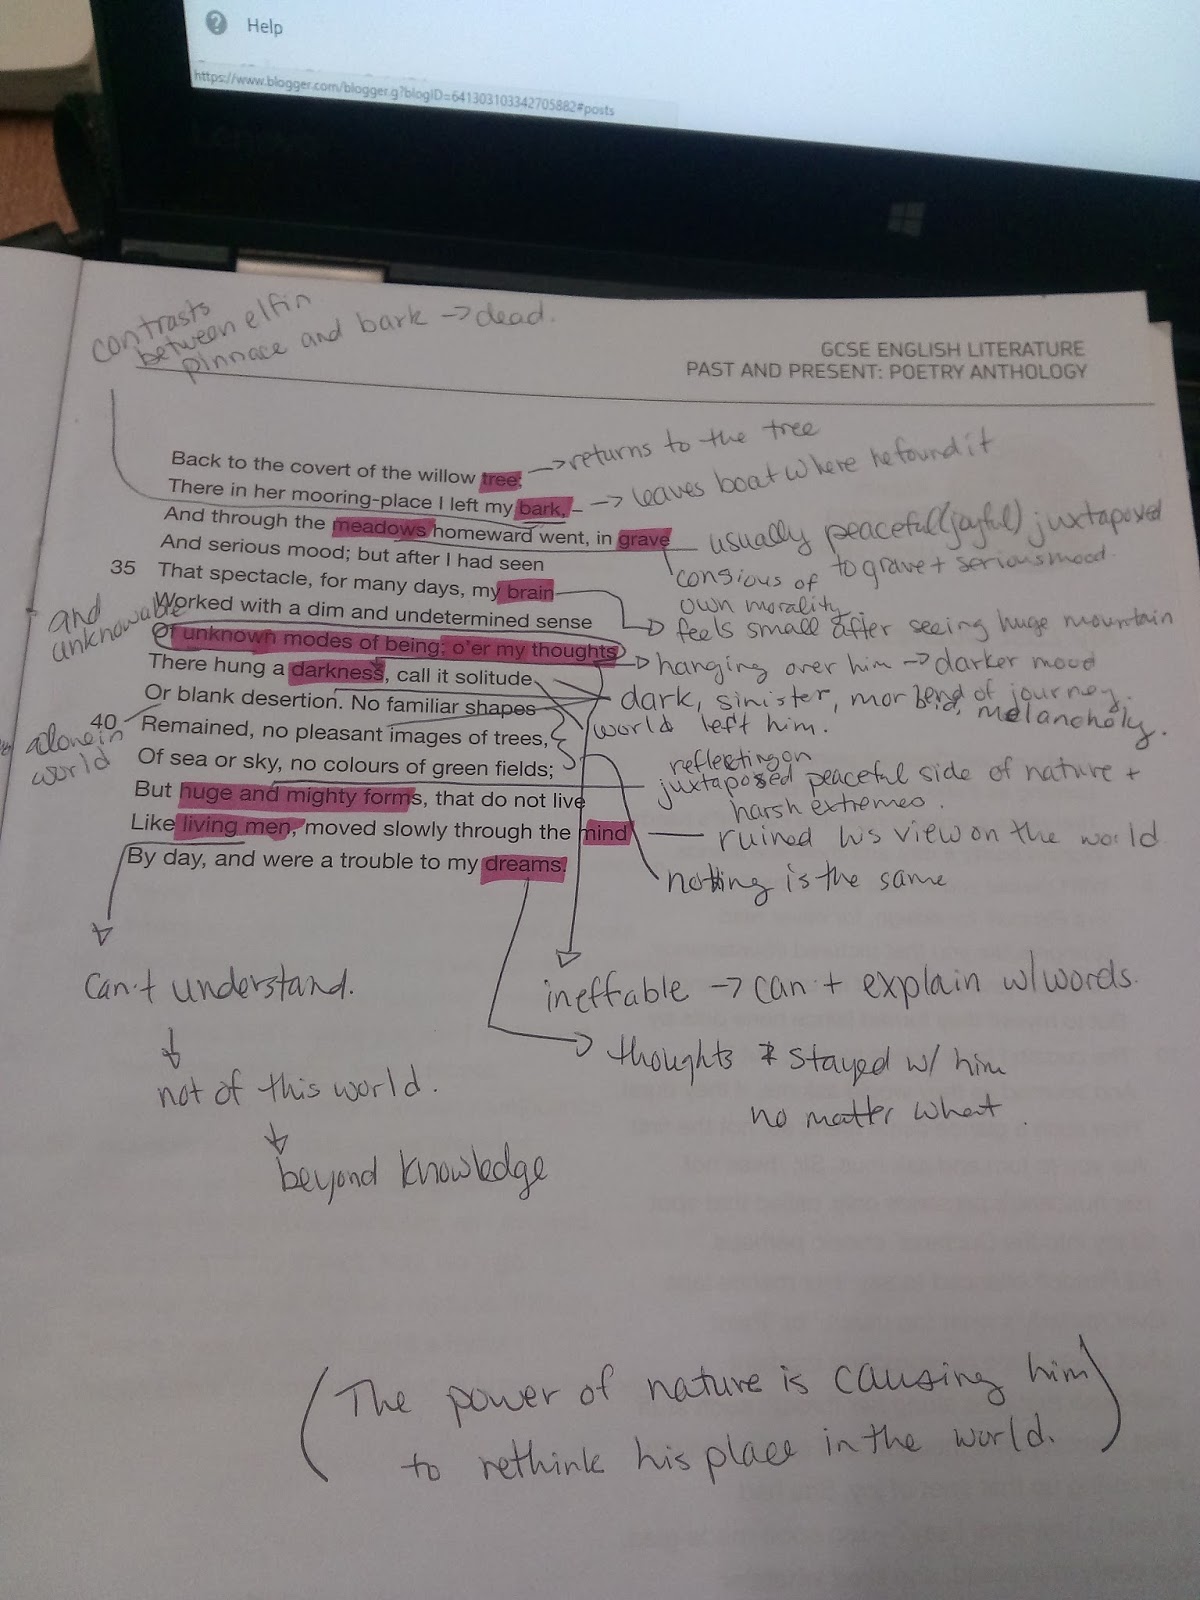 Help
https://www.blogger.com/blogger.g?blogID=641303103342705882#posts
contrasts
between elfin
pinnace and bark → dead.
GCSE ENGLISH LITERATURE
PAST AND PRESENT: POETRY ANTHOLOGY
Back to the covert of the willow tree; → returns to the tree
There in her mooring-place I left my bark, – → leaves boat where he found it
And through the meadows homeward went, in grave
usually peaceful (joyful) juxtaposed
to grave + serious mood.
And serious mood; but after I had seen
consious of
own morality.
35 That spectacle, for many days, my brain
feels small after seeing huge mountain
Worked with a dim and undetermined sense
and
unknowable
Of unknown modes of being; o'er my thoughts
hanging over him → darker mood
There hung a darkness, call it solitude
dark, sinister, morbend of journey.
melancholy.
Or blank desertion. No familiar shapes
world left him.
40 Remained, no pleasant images of trees,
alone in
world
Of sea or sky, no colours of green fields;
reflecting on
juxtaposed peaceful side of nature +
harsh extremes.
But huge and mighty forms, that do not live
Like living men, moved slowly through the mind
ruined his view on the world
By day, and were a trouble to my dreams.
nothing is the same
can't understand.
not of this world.
beyond knowledge
ineffable → can't explain w/words.
thoughts stayed w/ him
no matter what.
(The power of nature is causing him
to rethink his place in the world.)